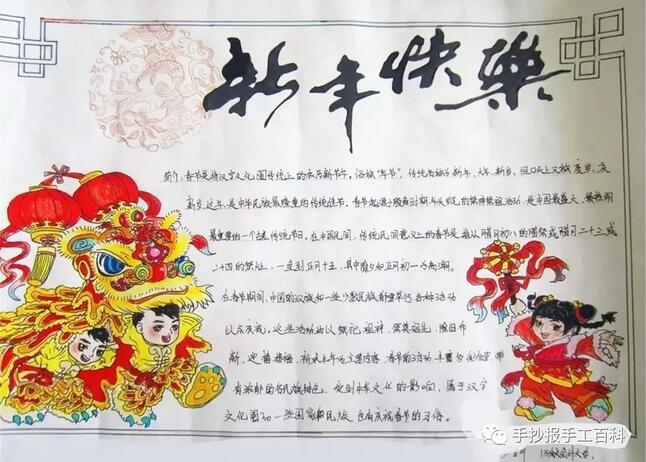 新年快樂
简介:春节是指汉字文化圈传统上的农历新年,俗称“年节”,传统名称为新年、大年、新岁,但口头上又称度岁、庆
新岁、过年,是中华民族最隆重的传统佳节。春节起源于殷商时期年头岁尾的祭神祭祖活动,是中国最盛大、最热闹
最重要的一个古老传统节日。在中国民间,传统民间意义上的春节是指从腊月初八的腊祭或腊月二十三或
二十四的祭灶,一直到正月十五,其中除夕和正月初一为高潮。
在春节期间,中国的汉族和一些少数民族都要举行各种活动
以示庆祝,这些活动均以祭祀祖神,祭奠祖先,除旧布
新,迎禧接福,祈求丰年为主要内容。春节的活动丰富多彩,带
有浓郁的各民族特色。受到中华文化的影响,属于汉字
文化圈的一些国家和民族也有庆祝春节的习俗。
手抄报手工百科